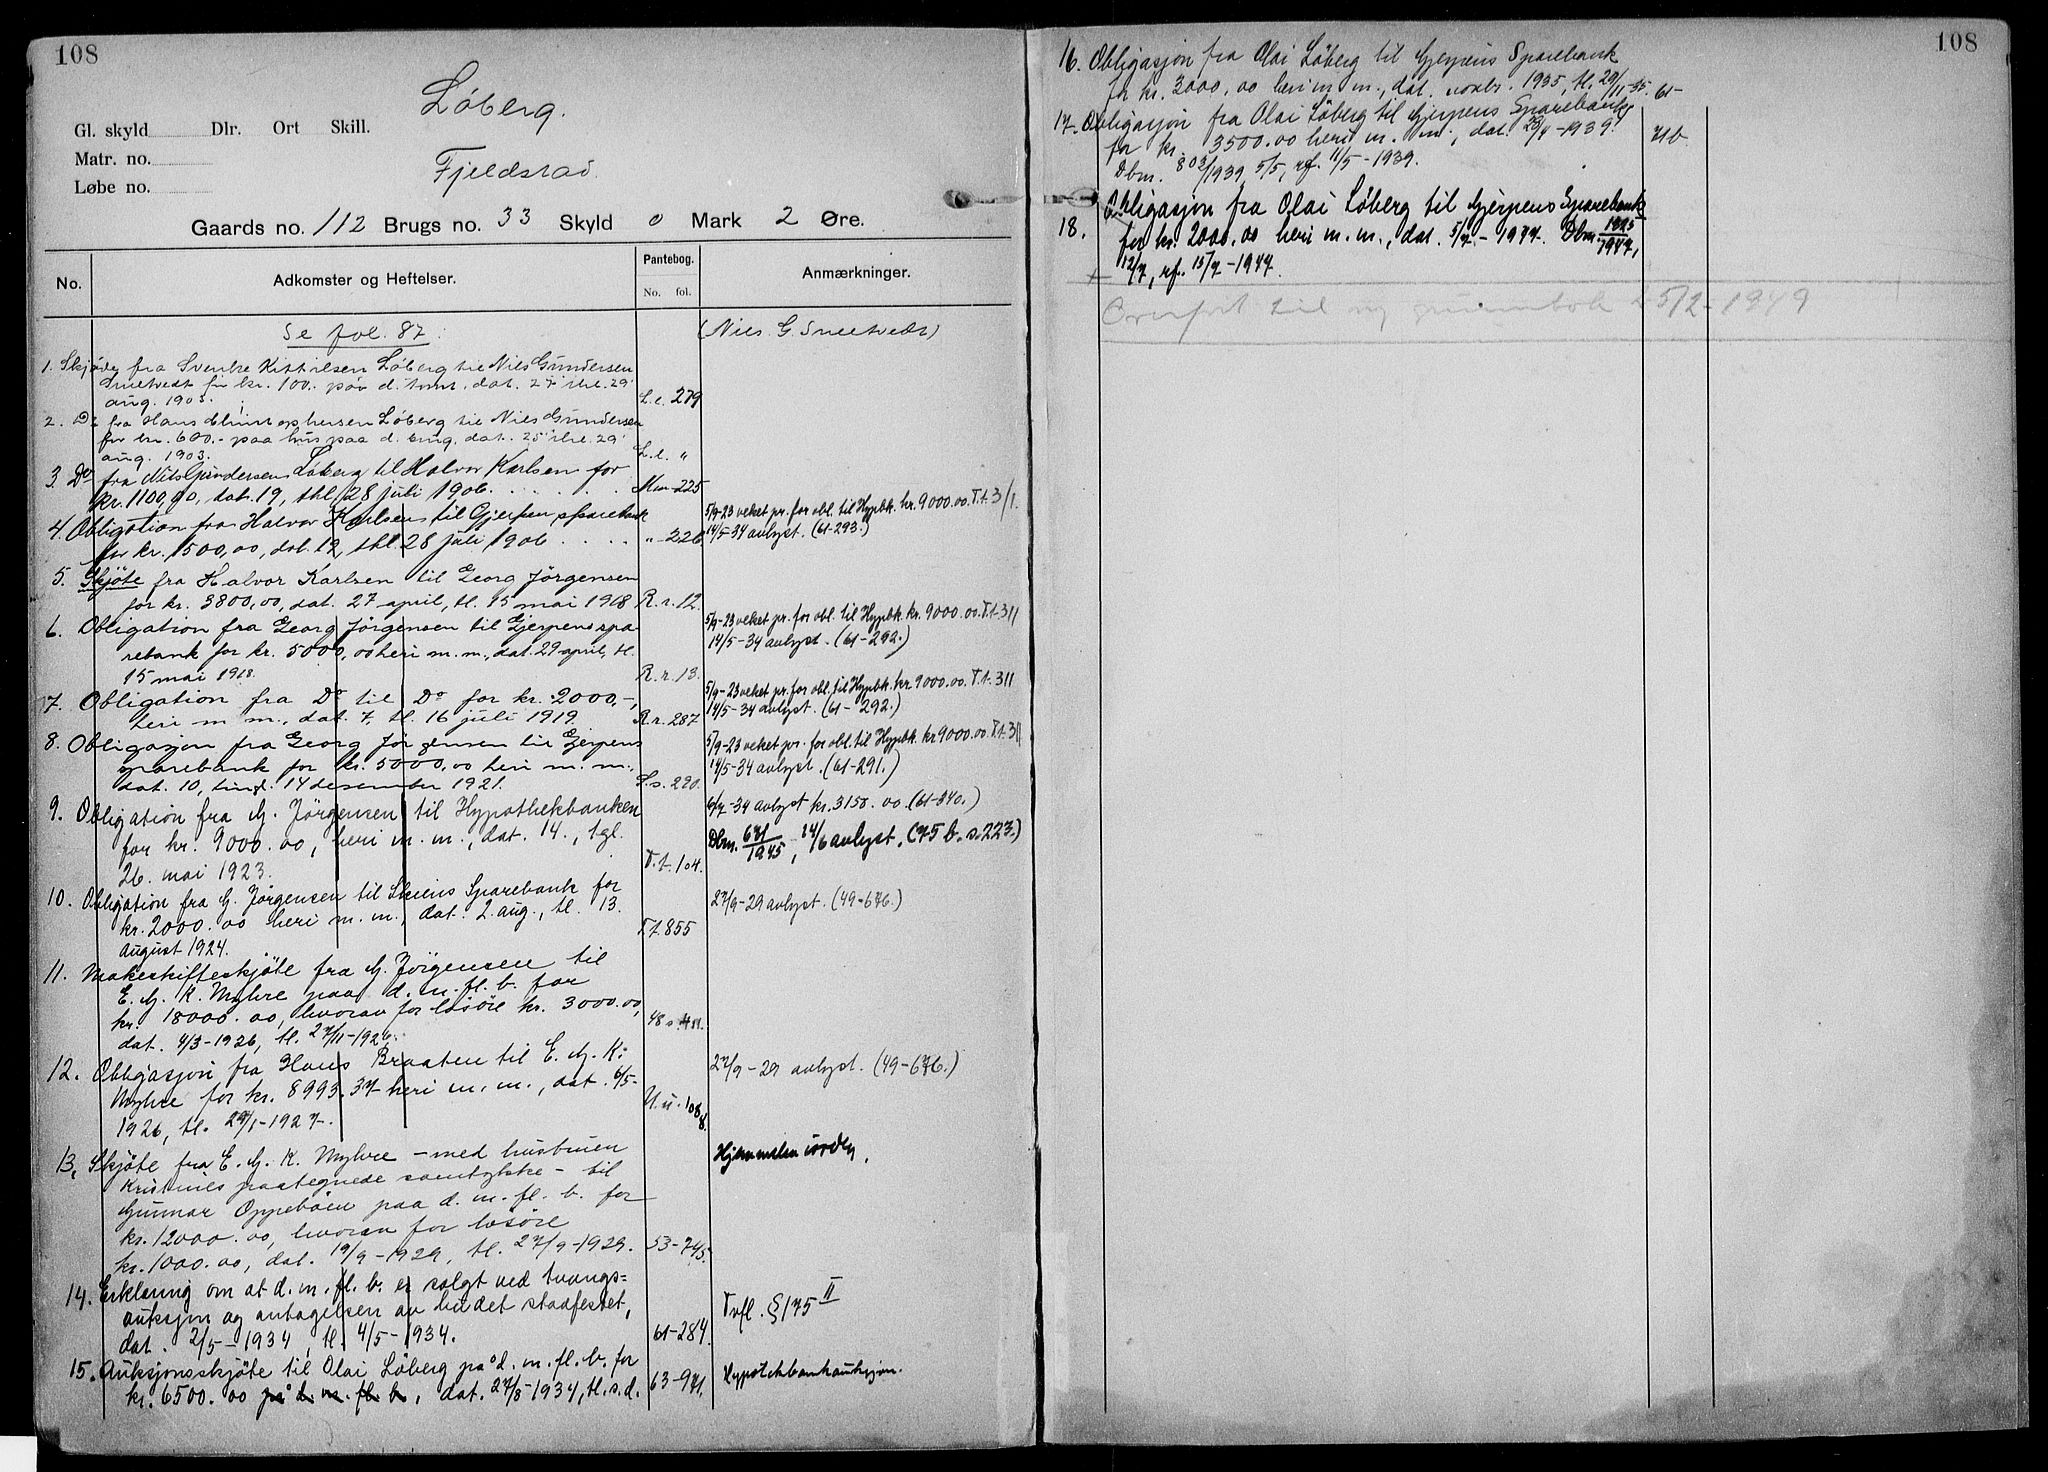 108
Løberg.
Gl. skyld Dlr. Ort Skill.
Matr. no.
Løbe no.
Fjeldstad.
Gaards no. 112 Brugs no. 33 Skyld 0 Mark 2 Øre.
No. Adkomster og Heftelser. Pantebog. No. fol. Anmærkninger.
Se fol. 87. (Niels G Snetvedt)
1. Skjøde fra Svenke Kittilsen Løberg til Niels Gundersen
Snetvedt for kr. 100.- paa d. brug. dat. 27 thl. 29'
aug. 1903. L.l. 279
2. Do fra Hans Christophersen Løberg til Niels Gundersen
for kr. 600.- paa hus paa d. brug, dat. 25' thl. 29'
aug. 1903. L.l. "
3. Do fra Nils Gundersen Løberg til Halvor Karlsen for
kr. 1100,00, dat. 19, thl. 28 juli 1906. M m 225
4. Obligation fra Halvor Karlsen til Gjerpen sparebank
for kr. 1500,00, dat. 19, thl. 28 juli 1906 " 226
5/9-23 veket pr. for obl. til Hypbk. kr. 9000.00. T.t. 311.
14/5-34 avlyst. (61-293.)
5. Skjöte fra Halvor Karlsen til Georg Jørgensen
for kr. 3800,00, dat. 27 april, tl. 15 mai 1918 R.r. 12.
6. Obligation fra Georg Jørgensen til Gjerpens spa-
rebank for kr. 5000,00 heri m. m., dat. 29 april, tl.
15 mai 1918. R.r. 13.
5/9-23 veket pr. for obl. til Hypbk. kr. 9000.00. T.t. 311
14/5-34 avlyst. (61-292.)
7. Obligation fra Do til Do for kr. 2000,-,
heri m m., dat. 7, tl. 16 juli 1919. R.r. 287
5/9-23 veket pr. for obl. til Hypbk. kr. 9000.00. T.t. 311
14/5-34 avlyst. (61-292.)
8. Obligasjon fra Georg Jørgensen til Gjerpens
sparebank for kr. 5000,00 heri m. m.,
dat. 10, tingl. 14 desember 1921. S.s. 220.
5/9-23 veket pr. for obl. til Hypbk. kr 9000.00. T.t. 311
14/5-34 avlyst. (61-291.)
9. Obligation fra G. Jörgensen til Hypothekbanken
for kr. 9000.00, heri m. m., dat. 14., tgl.
26. mai 1923. T.t. 104.
6/7-34 avlyst kr. 3150.00. (61-340.)
Dbm. 631/1945, 14/6 avlyst. (75 b. s. 223.)
10. Obligation fra G. Jörgensen til Skiens Sparebank for
kr. 2000.00 heri m. m., dat. 2. aug., tl. 13.
august 1924. T.t. 855
27/9-29 avlyst. (49-676.)
11. Makeskifteskjöte fra G. Jörgensen til
E. G. K. Myhre paa d. m. fl. b. for
kr. 18000.00, hvorav for løsöre kr. 3000.00,
dat. 4/3-1926, tl. 27/11-1926. 48 s. 411.
12. Obligasjon fra Hans Braaten til E. G. K.
Myhre for kr. 8993.37 heri m. m., dat. 6/5-
1926, tl. 29/1-1927. U.u. 1088.
27/9-29 avlyst. (49-676.)
13. Skjöte fra E. G. K. Myhre - med hustruen
Kristines paategnede samtykke - til
Gunnar Oppebøen paa d. m. fl. b. for
kr. 12000.00, hvorav for løsöre
kr. 1000.00, dat. 19/9-1929, tl. 27/9-1929. 53-745.
Hjemmelen i orden.
14. Erklæring om at d. m. fl. b. er solgt ved tvangs=
auksjon og antagelsen av budet stadfestet,
dat. 2/5-1934, tl. 4/5-1934. 61-284.
Tvfl. §175 II
15. Auksjonsskjöte til Olai Løberg på d. m. fl. b. for
kr. 6500.00 på d. m. fl. b., dat. 27/8-1934, tl. s. d. 63-971.
Hypotekbankauksjon.
108
16. Obligasjon fra Olai Løberg til Gjerpens Sparebank
for kr. 3000.00 heri m m., dat. novbr. 1935, tl. 29/11-35. 61-
17. Obligasjon fra Olai Løberg til Gjerpens Sparebank
for kr. 3500.00 heri m. m., dat. 29/4-1939. 71b
Dbm. 803/1939, 5/5, rf. 11/5-1939.
18. Obligasjon fra Olai Løberg til Gjerpens Sparebank
for kr. 2000.00 heri m. m., dat. 5/7-1947. Dbm. 1325/1947,
12/7, rf. 15/7-1947.
Overført til ny grunnbok 25/2-1949